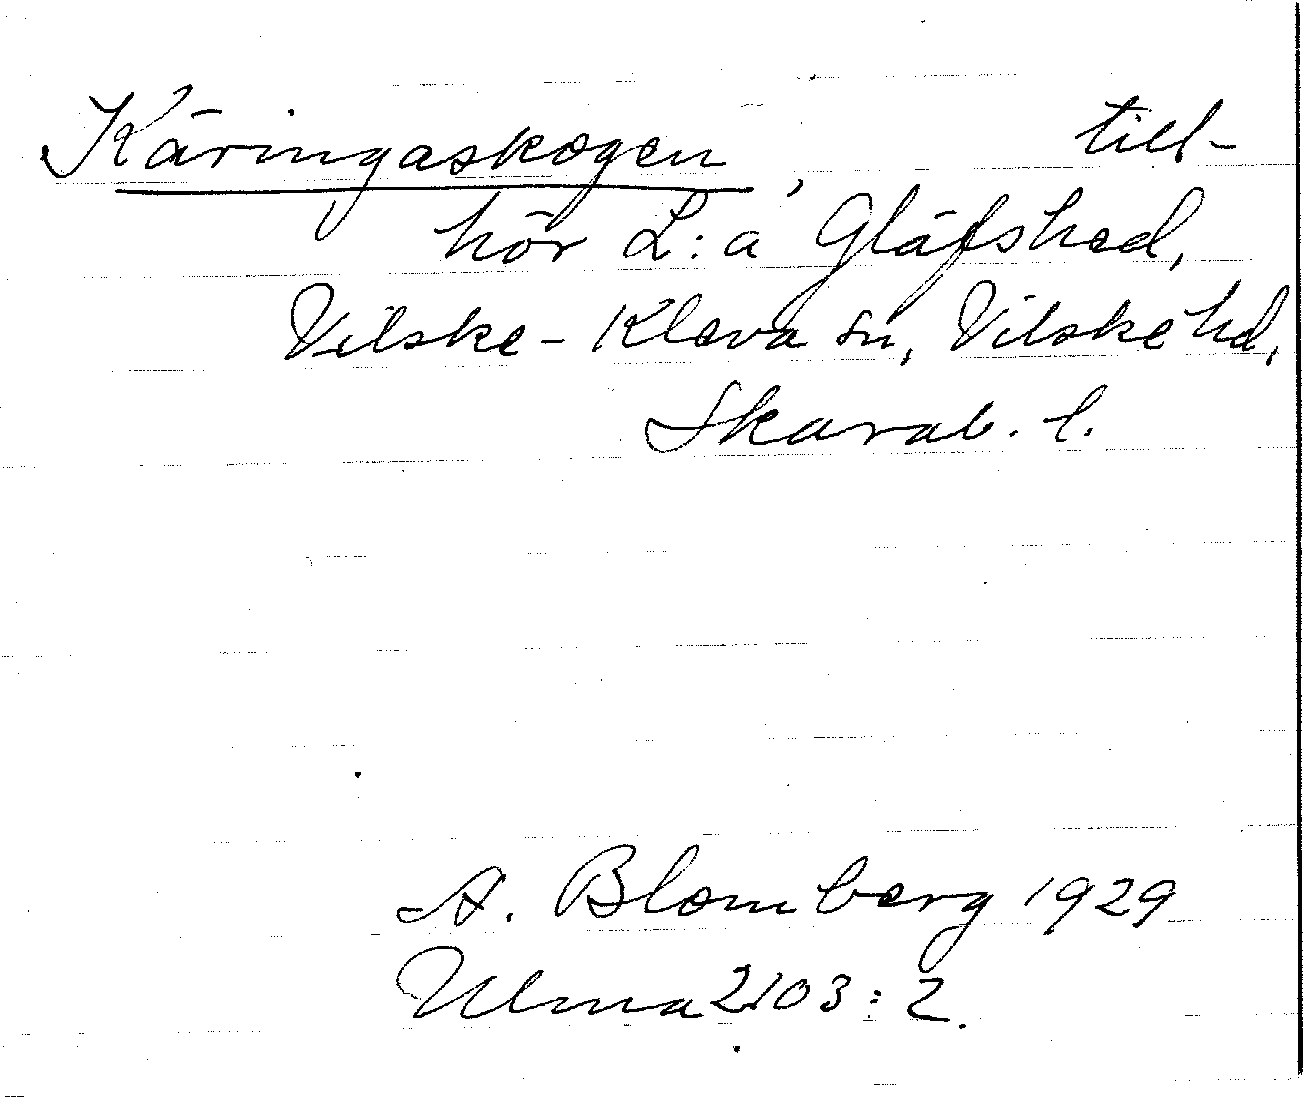 Käringaskogen, till-
hör L:a Gläfshed,
Vilske-Kleva sn, Vilske hd,
Skarab. l.
A. Blomberg 1929
Ulma 2103:2.